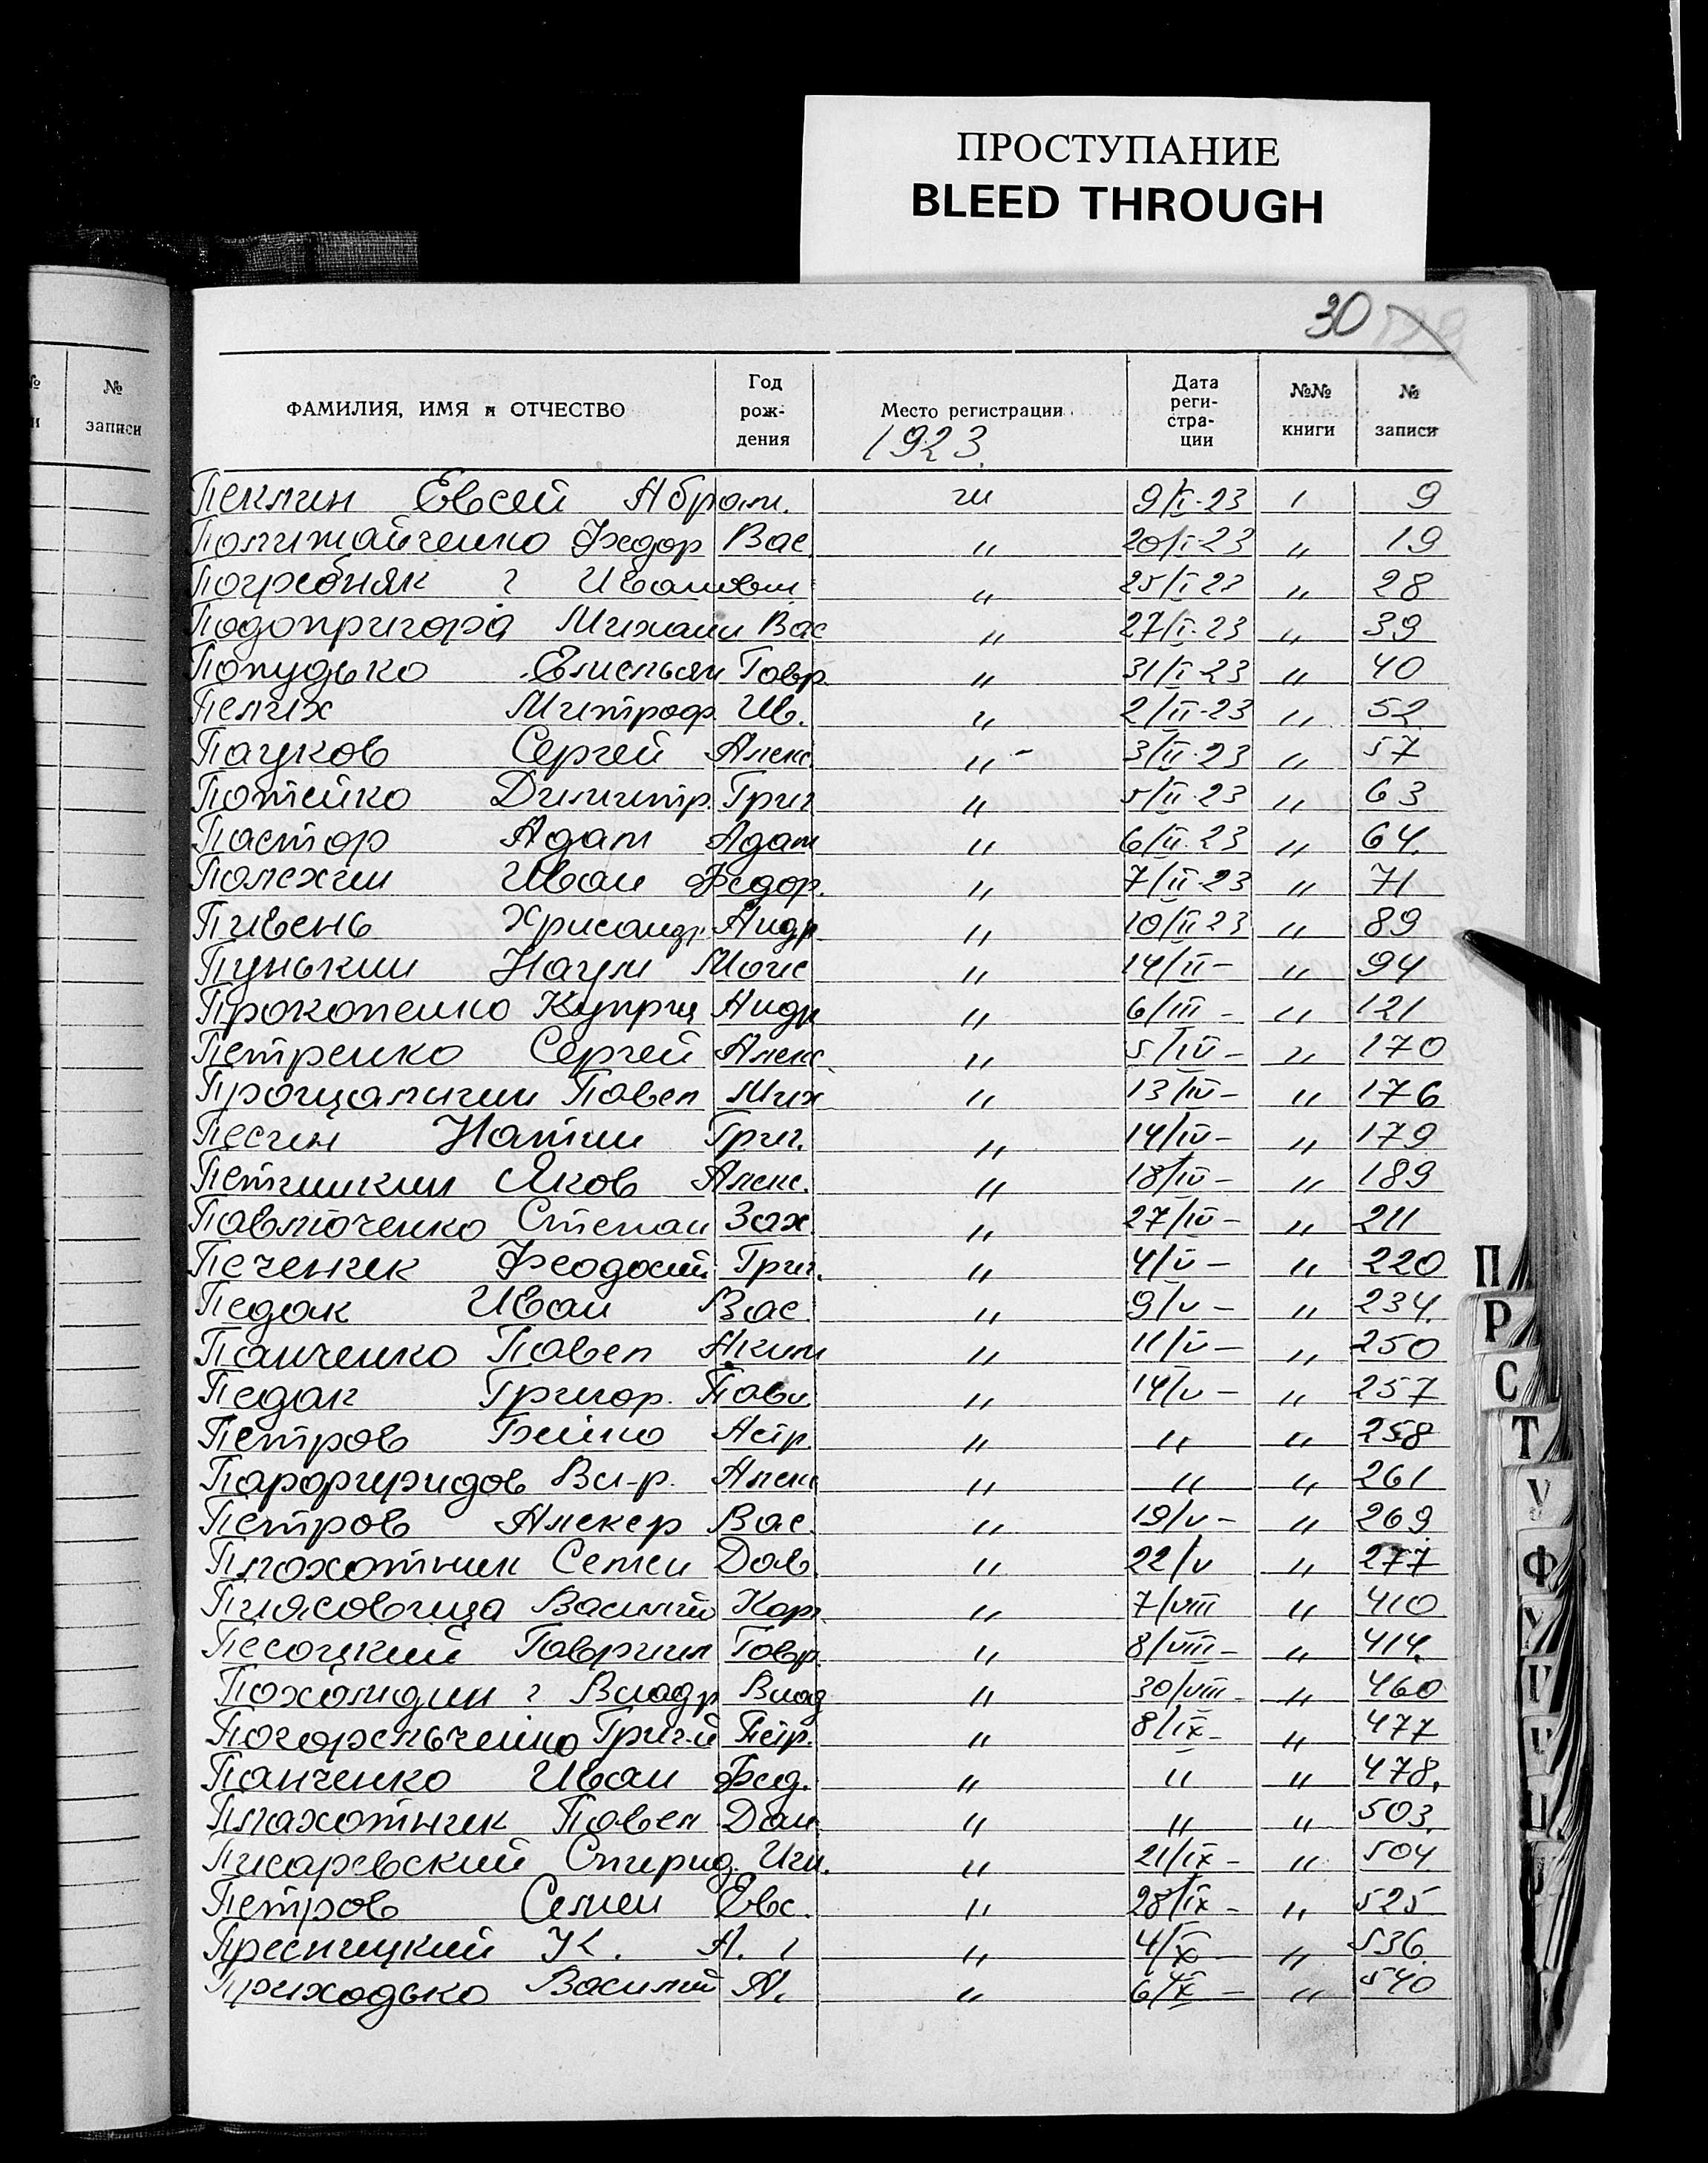 ПРОСТУПАНИЕ
BLEED THROUGH
30
№ записи
ФАМИЛИЯ, ИМЯ и ОТЧЕСТВО Год рождения Место регистрации Дата регистрации №№ книги № записи
1923
Пеклин Евсей Абрам. 9/I-23 1 9
Полижайченко Федор Вас 20/I-23 " 19
Погребняк ? Иванович " 25/I 23 " 28
Подопригора Михаил Вас " 27/I-23 " 39
Попудько Емельян Гавр. " 31/I-23 " 40
Пелих Митроф. Ив. " 2/II-23 " 52
Пауков Сергей Алекс. " 3/II-23 " 57
Потейко Димитр. Григ " 5/II-23 " 63
Пастор Адам Адам " 6/II-23 " 64.
Полехин Иван Федор. " 7/II-23 " 71
Пивень Хрисанф. Андр. " 10/II 23 " 89
Пунькин Наум Моис " 14/II- " 94
Прокопенко Купри Андр " 6/III - " 121
Петренко Сергей Алекс. " 5/IV- " 170
Прощалыгин Павел Мих " 13/IV- " 176
Песин Натан Григ. " 14/IV- " 179
Петишкин Яков Алекс. " 18/IV- " 189
Павлюченко Степан Зах. " 27/IV- " 211
Печеник Феодосий Григ. " 4/V- " 220
Педак Иван Вас. " 9/V- " 234.
Панченко Павел Аким " 11/V- " 250
Педак Григор. Павл. " 14/V- " 257
Петров " " " 258
Парфиридов Вл-р. Алекс " " " 261
Петров Алексер Вас. " 19/V- " 269
Плохотник Семен Дав. " 22/V " 277
Василий Кар " 7/VIII " 410
Песоцкий Гавриил Гавр. " 8/VIII- " 414.
Похолидин ? Владр Влад " 30/VIII- " 460
Погорельченко Григ-й Петр. " 8/IX- " 477
Панченко Иван Фед. " " " 478.
Плахотник Павел Дан. " " " 503.
Писаревский Спирид. Игн. " 21/IX- " 504
Петров Семен Евс. " 28/IX- " 525
К. А. ? " 4/X- " 536
Приходько Василий А. " 6/X- " 540
П
Р
С
Т
У
Ф